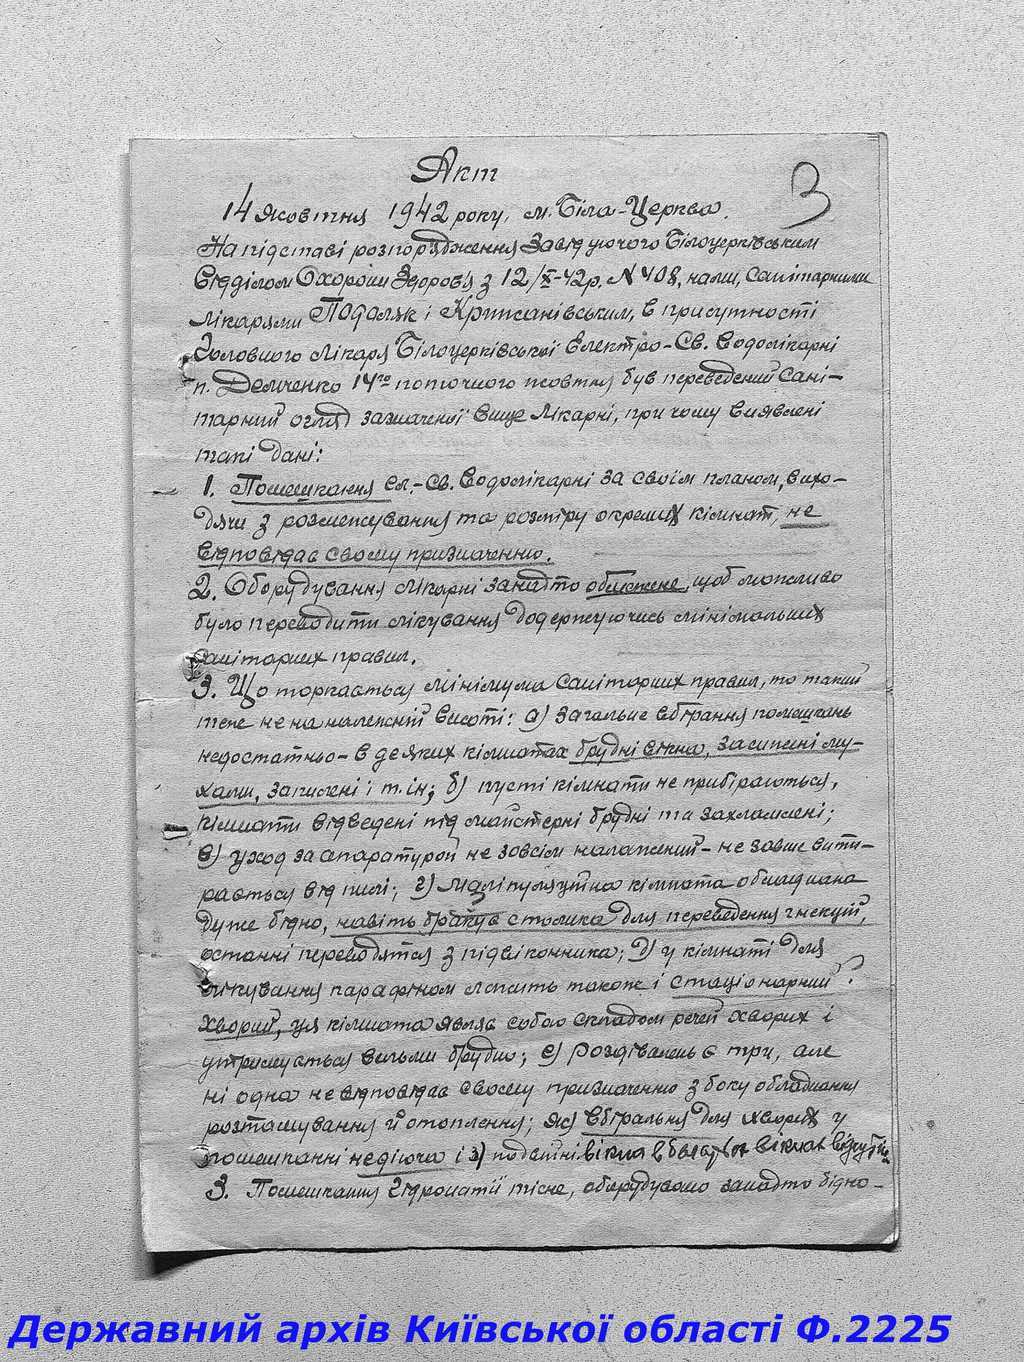 Акт
3
14 жовтня 1942 року, м. Біла-Церква.
На підставі розпорядження Завідуючого Білоцерківським
Відділом Охорони Здоров'я з 12/X-42р. N 408, нами, санітарними
лікарями Подоляк і Крижанівським, в присутності
Головного Лікаря Білоцерківської Електро-Св. Водолікарні
п. Демченко 14го поточного жовтня був переведений сані-
тарний огляд зазначеної вище Лікарні, при чому виявлені
такі дані:
1. Помешкання Ел.-Св. Водолікарні за своїм планом, вихо-
дячи з розмежування та розміру окремих кімнат, не
відповідає своєму призначенню.
2. Оборудування Лікарні занадто обмежене, щоб можливо
було переводити лікування додержуючись мінімальних
санітарних правил.
3. Що торкається мінімума санітарних правил, то такий
теж не на належній висоті: а) загальне вбирання помешкань
недостатньо - в деяких кімнатах брудні вікна, засижені му-
хами, запилені і т.ін; б) пусті кімнати не прибіраються,
кімнати відведені під майстерні брудні та захламлені;
в) уход за апаратурой не зовсім налажений - не завше вити-
рається від пилі; г) маніпуляційна кімната обладнана
дуже бідно, навіть бракує столика для переведення інєкцій,
останні переводятся з підвіконника; д) у кімнаті для
лікування парафіном лежить також і стаціонарний ?
хворий, ця кімната являє собою складом речей хворих і
утримується вельми брудно; е) роздівалень є три, але
ні одна не відповідає своєму призначенню з боку обладнання
розташування й отоплення; ж) вбіральня для хворих у
помешканні недіюча і з) подвійні вікна в
3. Помешкання Гідропатії тісне, оборудувано занадто бідно-
Державний архів Київської області Ф.2225